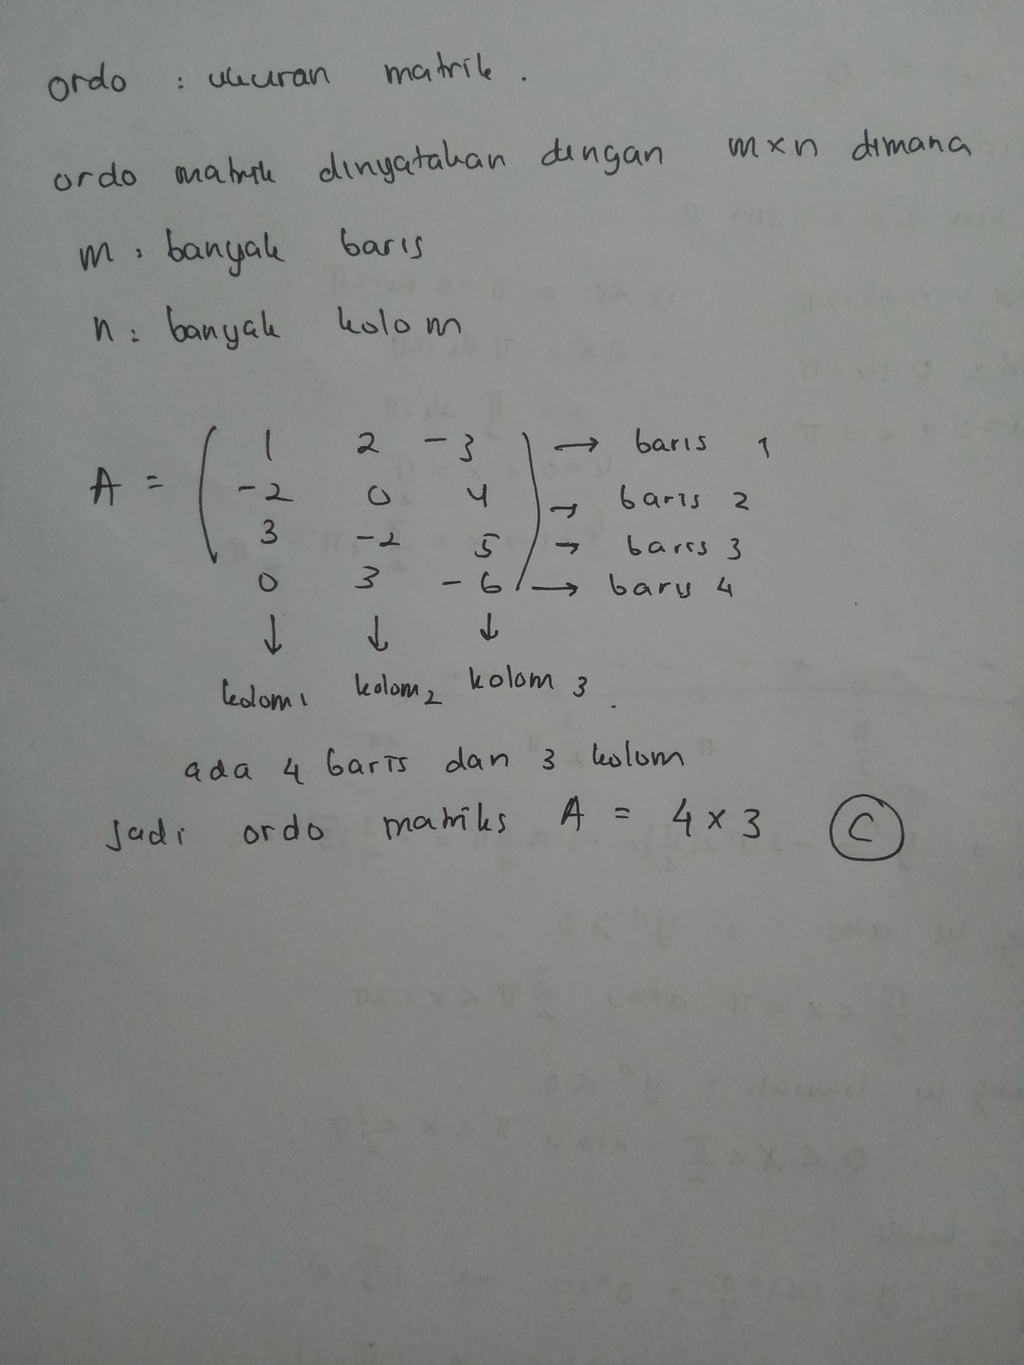 ordo : ukuran matrik .
ordo matrik dinyatakan dengan mxn dimana
m : banyak baris
n : banyak kolom
A = ( 1 2 -3 ) → baris 1
-2 0 4 → baris 2
3 -2 5 → baris 3
0 3 -6 → baris 4
↓ ↓ ↓
kolom 1 kolom 2 kolom 3 .
ada 4 baris dan 3 kolom
Jadi ordo matriks A = 4 x 3 C